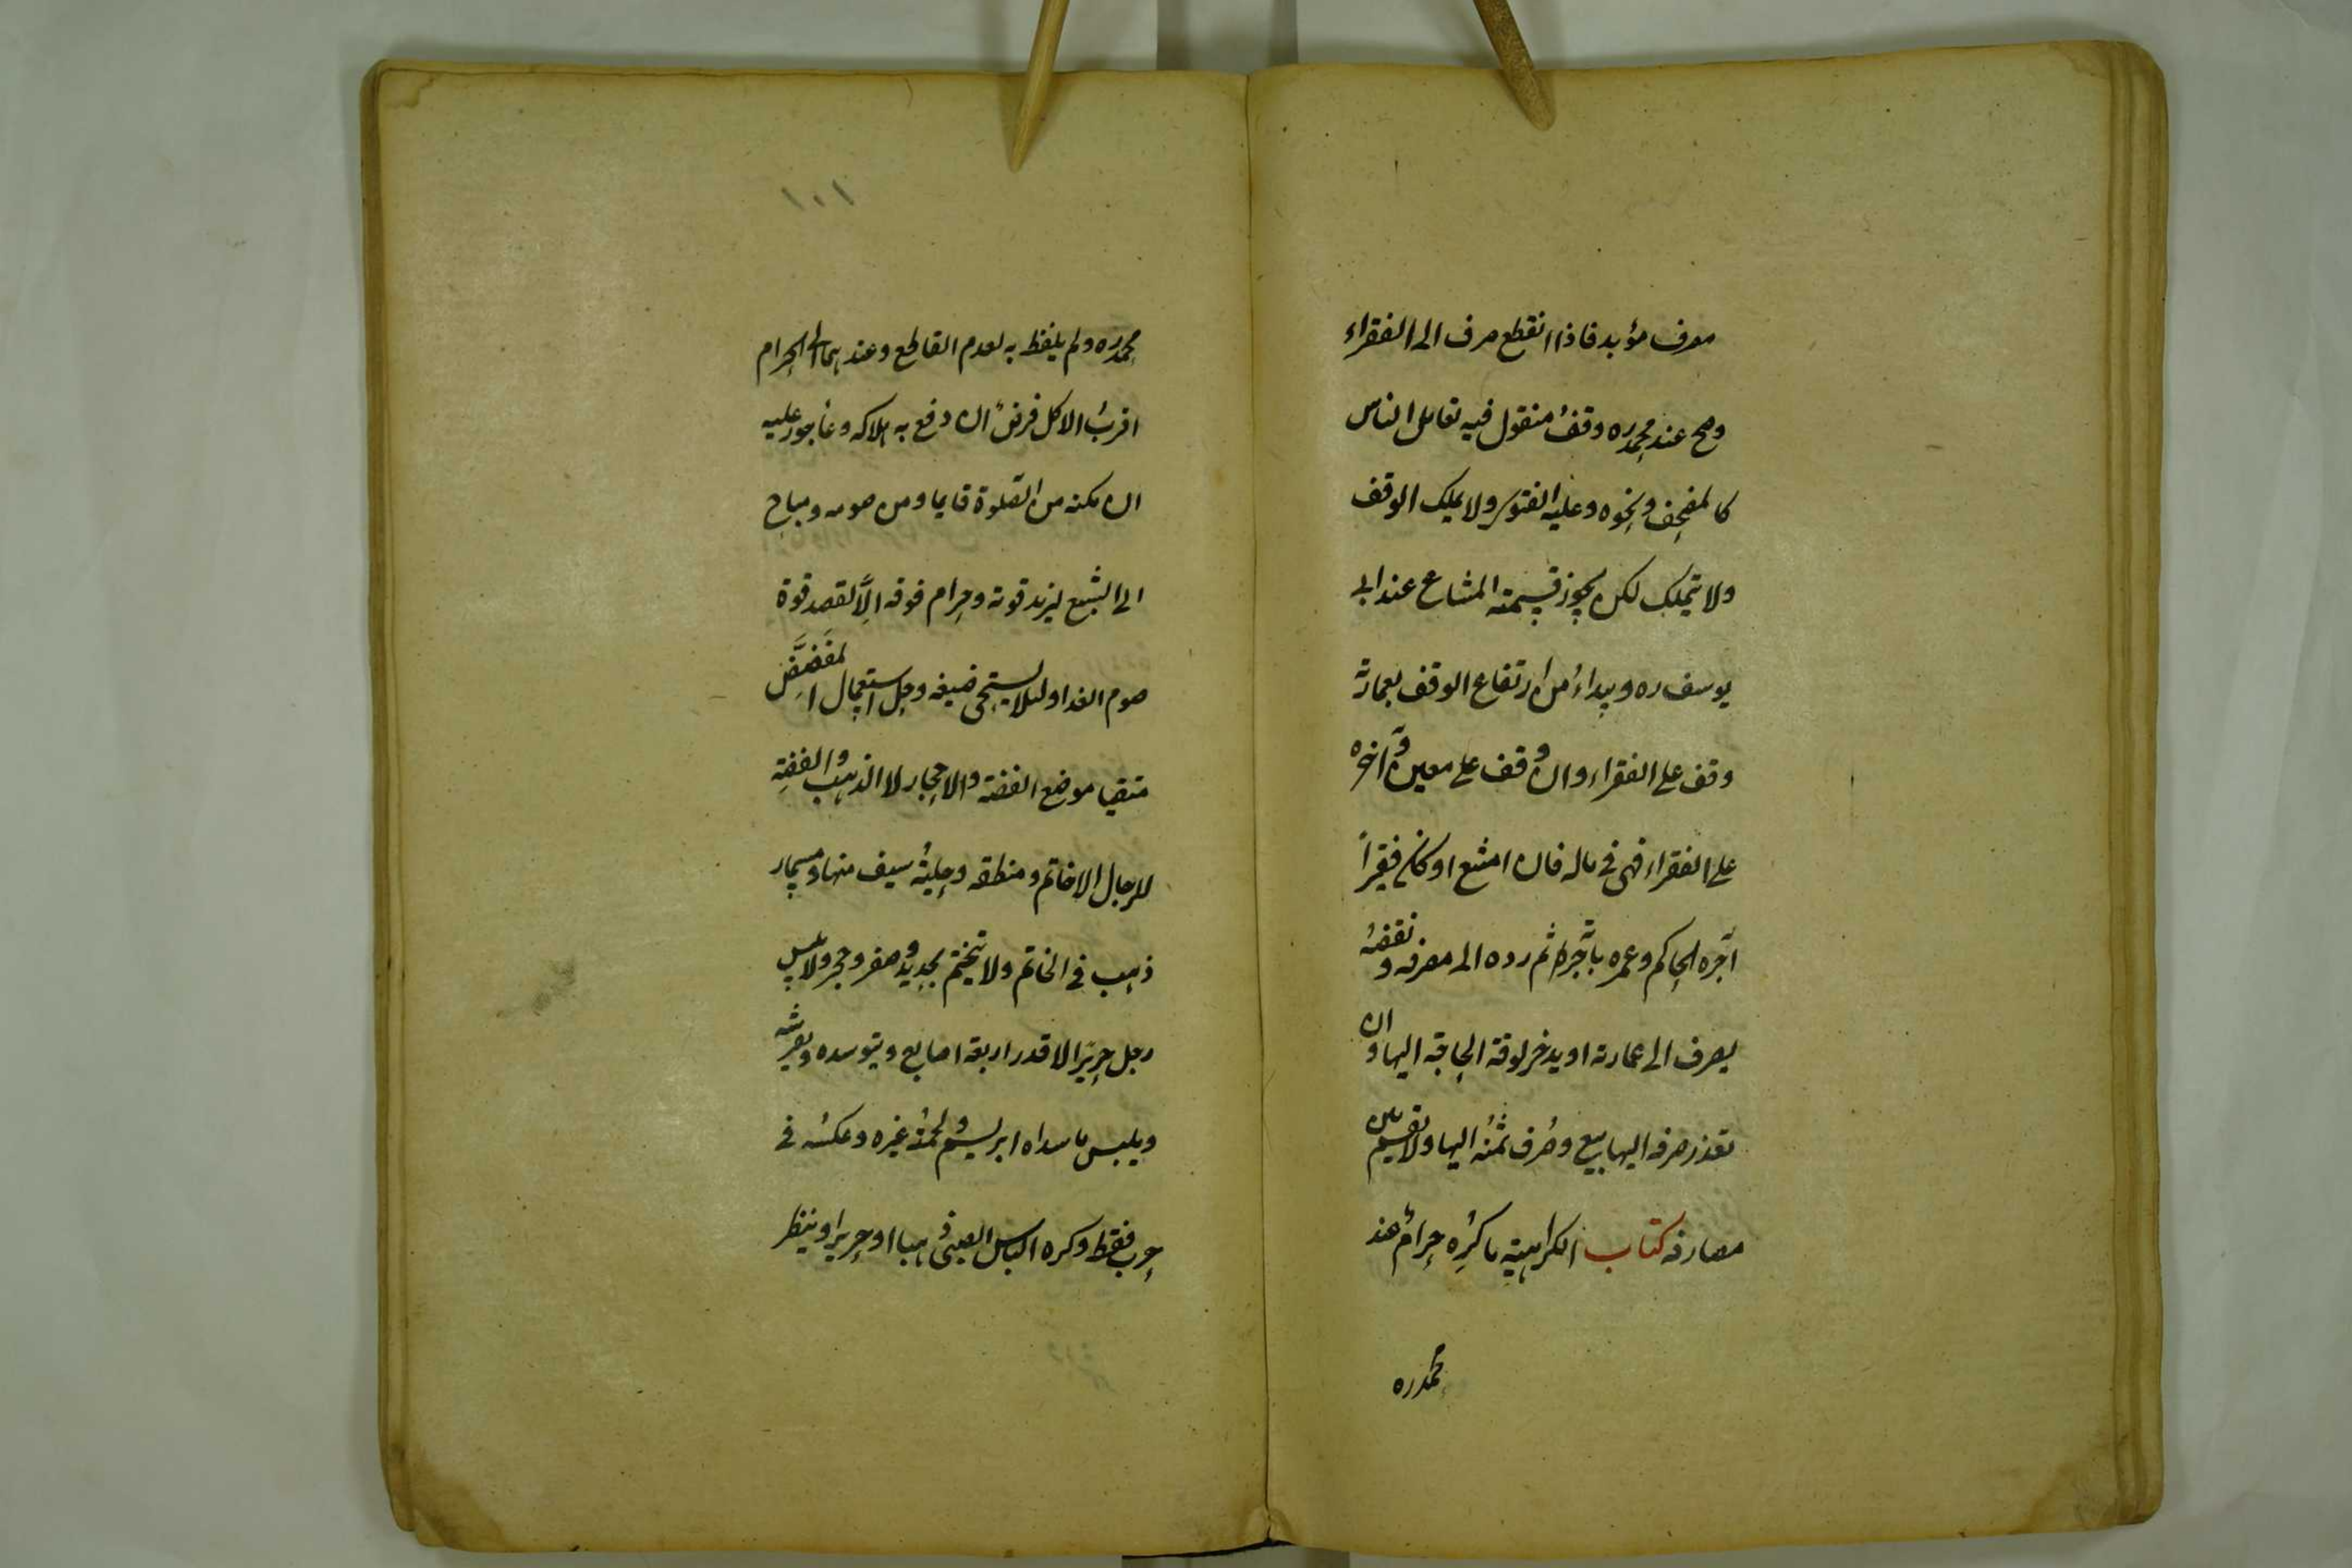 مصرف مؤبد فاذا انقطع صرف الى الفقراء
وصح عند محمد ره وقف منقول فيه تعامل الناس
كالمصحف ونحوه وعليه الفتوى ولا يملك الوقف
ولا يتملك لكن يجوز قسمته المشاع عند ابى
يوسف ره ويبداء من ارتفاع الوقف بعمارته
وقف على الفقراء وان وقف على معين وآخره
على الفقراء فهى فى ماله فان امتنع او كان فقيراً
آجره الحاكم وعمره باجرته ثم رده الى مصرفه ونقضه
يصرف الى عمارته او يدخر لوقت الحاجة اليها وان
تعذر صرفه اليها بيع وصُرف ثمنُه اليها ولا يقسم بين
مصارفه كتاب الكراهية ما كُرِه حرامٌ عند
محمد ره
١٠١
محمد ره ولم يلفظ به لعدم القاطع وعندهما الى الحرام
اقربُ الاكل فرضٌ ان دفع به هلاكه وماجور عليه
ان مكنه من الصلوة قايما ومن صومه ومباح
الى الشبع ليزيد قوته وحرام فوقه الّا لقصد قوة
صوم الغد او لئلا يستحى ضيفه وحل استعمال المفضَّض
متقيا موضع الفضة والاحجار لا الذهب والفضة
للرجال الا خاتم ومنطقه وحلية سيف منها ومسمار
ذهب فى الخاتم ولا يتختم بحديد وصفر وحجر ولا يلبس
رجل حريرًا الا قدر اربعة اصابع ويتوسده ويفرشه
ويلبس ما سداه ابريشم ولحمته غيره وعكسه فى
حرب فقط وكره الباس الصبى ذهبا او حريرا وينظر